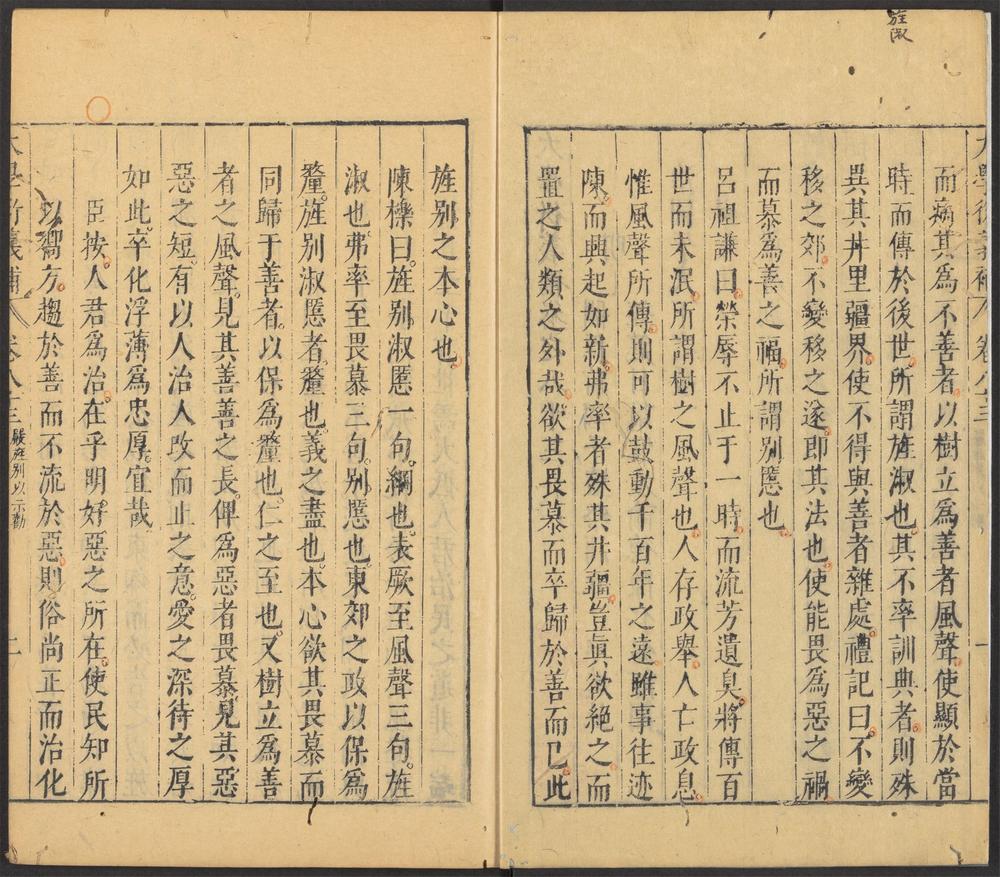 旌淑
大學衍義補 卷八十三
而㾮其為不善者以樹立為善者風聲使顯於當
時而傳於後世所謂旌淑也其不率訓典者則殊
異其井里疆界使不得與善者雜處禮記曰不變
移之郊不變移之遂即其法也使能畏為惡之禍
而慕為善之福所謂別慝也
呂祖謙曰榮辱不止于一時而流芳遺臭將傳百
世而未泯所謂樹之風聲也人存政舉人亡政息
惟風聲所傳則可以鼓動千百年之遠雖事往迹
陳而興起如新弗率者殊其井疆豈真欲絕之而
置之人類之外哉欲其畏慕而卒歸於善而已此
旌別之本心也
陳櫟曰旌別淑慝一句綱也表厥至風聲三句旌
淑也弗率至畏慕三句別慝也東郊之政以保為
釐旌別淑慝者釐也義之盡也本心欲其畏慕而
同歸于善者以保為釐也仁之至也又樹立為善
者之風聲見其善善之長俾為惡者畏慕見其惡
惡之短有以人治人改而止之意愛之深待之厚
如此卒化浮薄為忠厚宜哉
臣按人君為治在乎明好惡之所在使民知所
以嚮方趨於善而不流於惡則俗尚正而治化
大學衍義補 卷八十三 嚴旌別以示勸 二